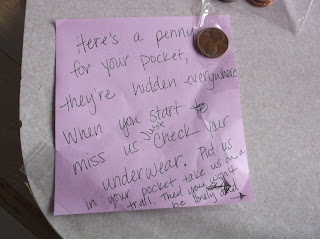 Here's a penny
for your pocket,
they're hidden everywhere
When you start to
miss us just check your
underwear. Put us
in your pocket take us on a
trail. Then you won't
be lonely